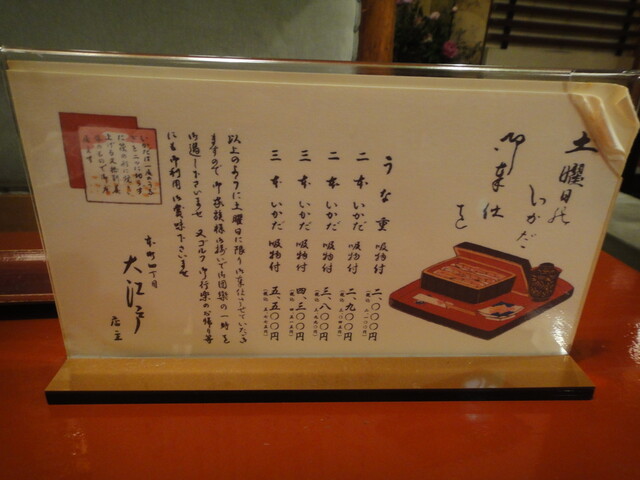 土曜日の
いかだ
御奉仕
うな重 吸物付 二、〇〇〇円
二本いかだ 吸物付 二、九〇〇円
二本いかだ 吸物付 三、八〇〇円
三本いかだ 吸物付 四、三〇〇円
三本いかだ 吸物付 五、五〇〇円
以上のように土曜日に限り御奉仕させていただき
ますので 御家族様お揃いで御団欒の一時を
お過し下さいませ 又ゴルフ 御行楽のお帰り等
にも御利用御賞味下さいませ
本町四丁目
大江戸
店主